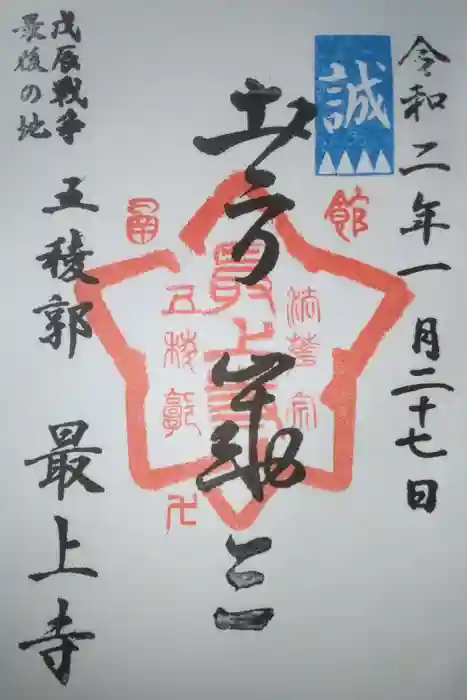 令和二年一月二十七日
誠
土方歳三
館
最上寺
五稜郭
卍
戊辰戦争
最後の地
五稜郭 最上寺